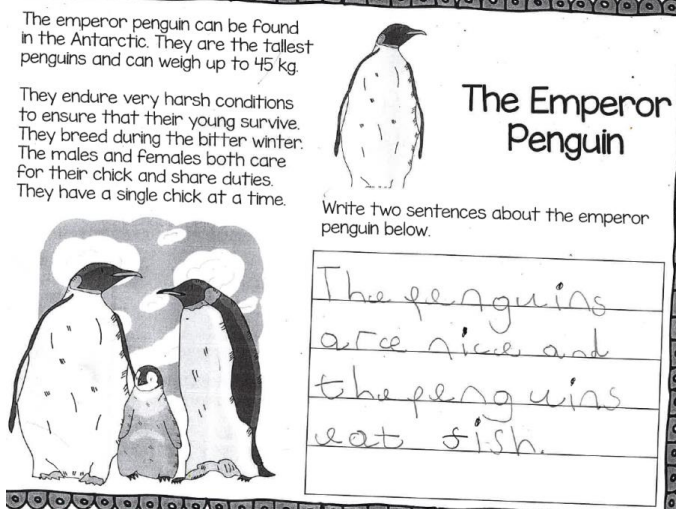 The emperor penguin can be found
in the Antarctic. They are the tallest
penguins and can weigh up to 45 kg.
They endure very harsh conditions
to ensure that their young survive.
They breed during the bitter winter.
The males and females both care
for their chick and share duties.
They have a single chick at a time.
The Emperor
Penguin
Write two sentences about the emperor
penguin below.
The penguins
are nice and
the penguins
eat fish.